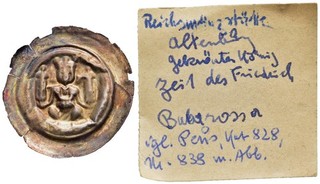 Reichsmünzstätte
Altenburg
gekrönter König
Zeit des Friedrich
Barbarossa
vgl. Peus, Kat 328,
Nr. 838 m. Abb.